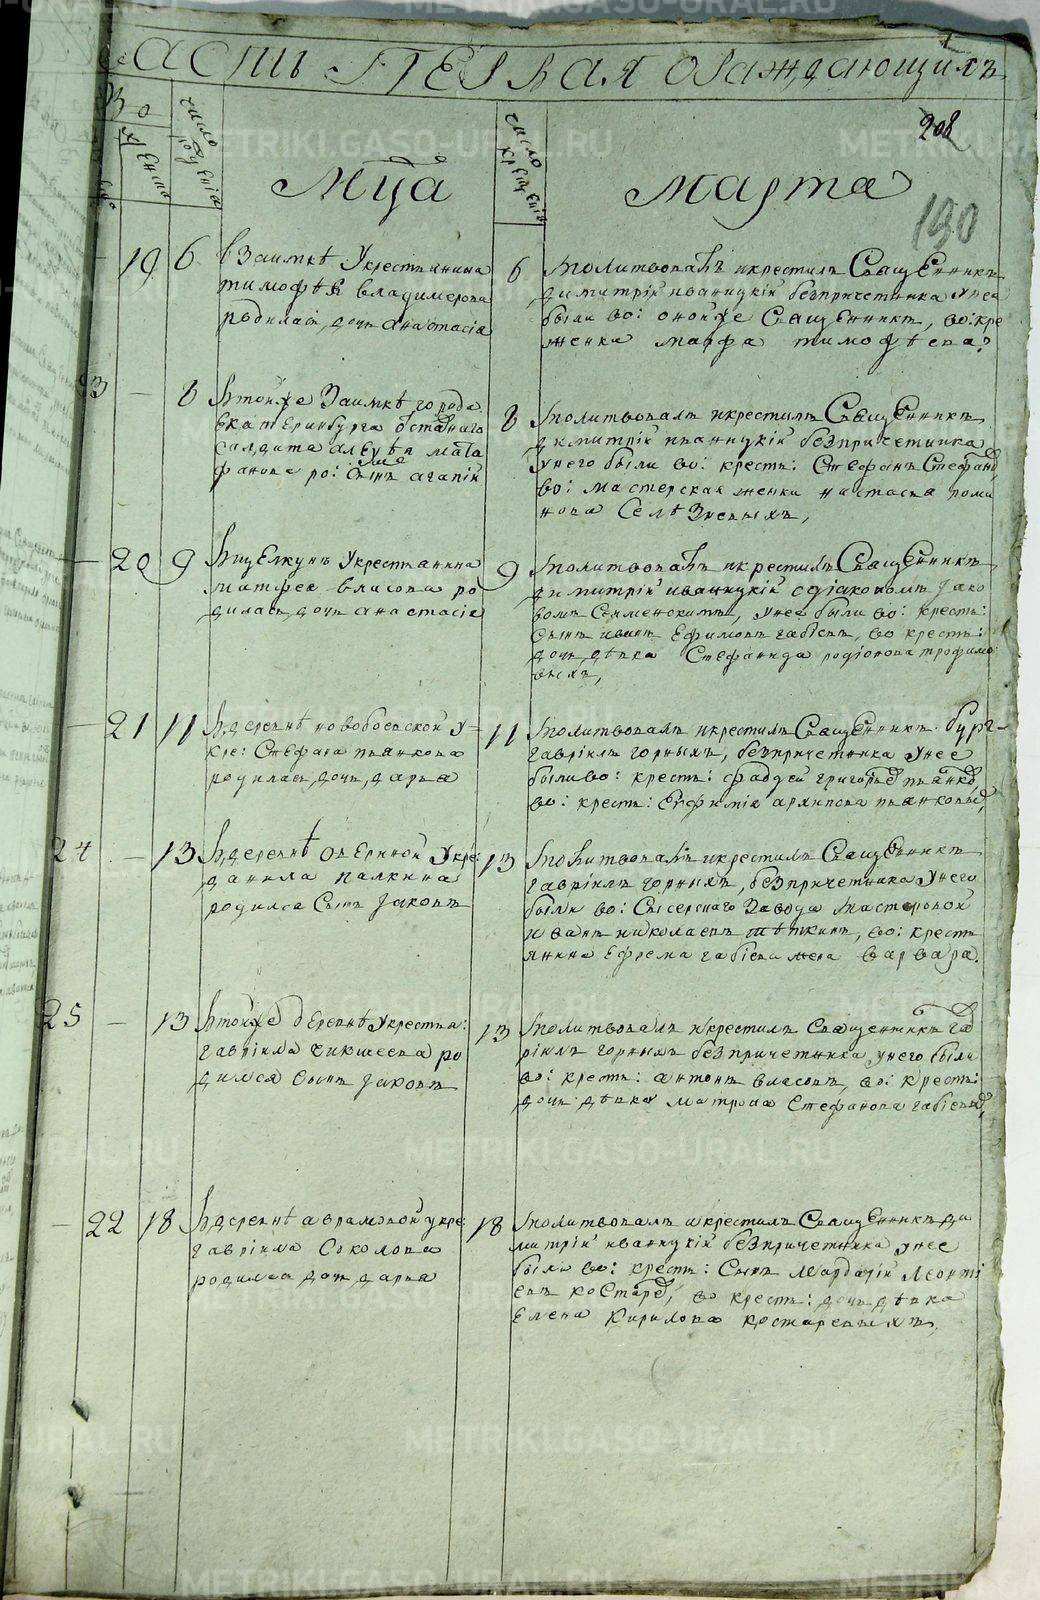 асть первая о раждающихъ
число рожденiя
число крещенiя
208
190
Мца
марта
19
6
в Заимкѣ у крестьянина
тимофѣя владимерова
родилась дочь анастасiя
6
молитвовалъ и крестилъ Священникъ
димитрiй иваницкiй без причетника у нея
были во: оной же Священникъ, во: кре
женка марфа тимофѣева
23
8
в той же Заимкѣ города
екатеринбурга оставнаго
салдата
фанова ро: Сынъ агапiй
8
молитвовалъ и крестилъ Священникъ
димитрiй иваницкiй без причетника
у него были во: кресть: Стефанъ Стефанов
во: мастерская женка настасья рома
нова Селѣзневыхъ,
20
9
в щелкунъ у крестьянина
матфея власова ро
дилась дочь анастасiя
9
молитвовалъ и крестилъ Священникъ
димитрiй иваницкiй с дiакономъ Iако
вомъ у нее были во: кресть:
Сынъ иванъ Ефимовъ габiевъ, во кресть:
дочь дѣвка Стефанида родiонова трофимо
выхъ,
21
11
в деревнѣ новобоевской у
кре: Стефана пьянкова
родилась дочь дарья
11
молитвовалъ и крестилъ Священникъ
гаврiилъ горныхъ, без причетника у нее
были во: кресть: фадей григорьев пьянков
во: кресть: Евфимiя архипова пьянковых,
24
13
в деревнѣ Овериной у кре:
данила палкина
родился Сынъ Iаковъ
13
молитвовалъ и крестилъ Священникъ
гаврiилъ горныхъ, без причетника у него
были во: Сысерскаго Завода мастеровой
иванъ николаевъ тѣткинъ, во: кресть
янина Ефрема габiева жена варвара.
25
13
в той же деревнѣ у крестья:
гаврiила чикшеева ро
дился Сынъ Iаковъ
13
молитвовалъ и крестилъ Священникъ га
врiилъ горныхъ без причетника у него были
во: кресть: антонъ власовъ, во: кресть:
дочь дѣвка матрона Стефанова габiевых,
22
18
в деревнѣ аврамовой у кре:
гаврiила Соколова
родилась дочь дарья
18
молитвовалъ и крестилъ Священникъ ди
митрiй иваницкiй без причетника у нее
были во: кресть: Сынъ Мардарiй Леонтi
евъ Костарев, во кресть: дочь дѣвка
Елена Кирилова костаревыхъ,
METRIKI.GASO-URAL.RU